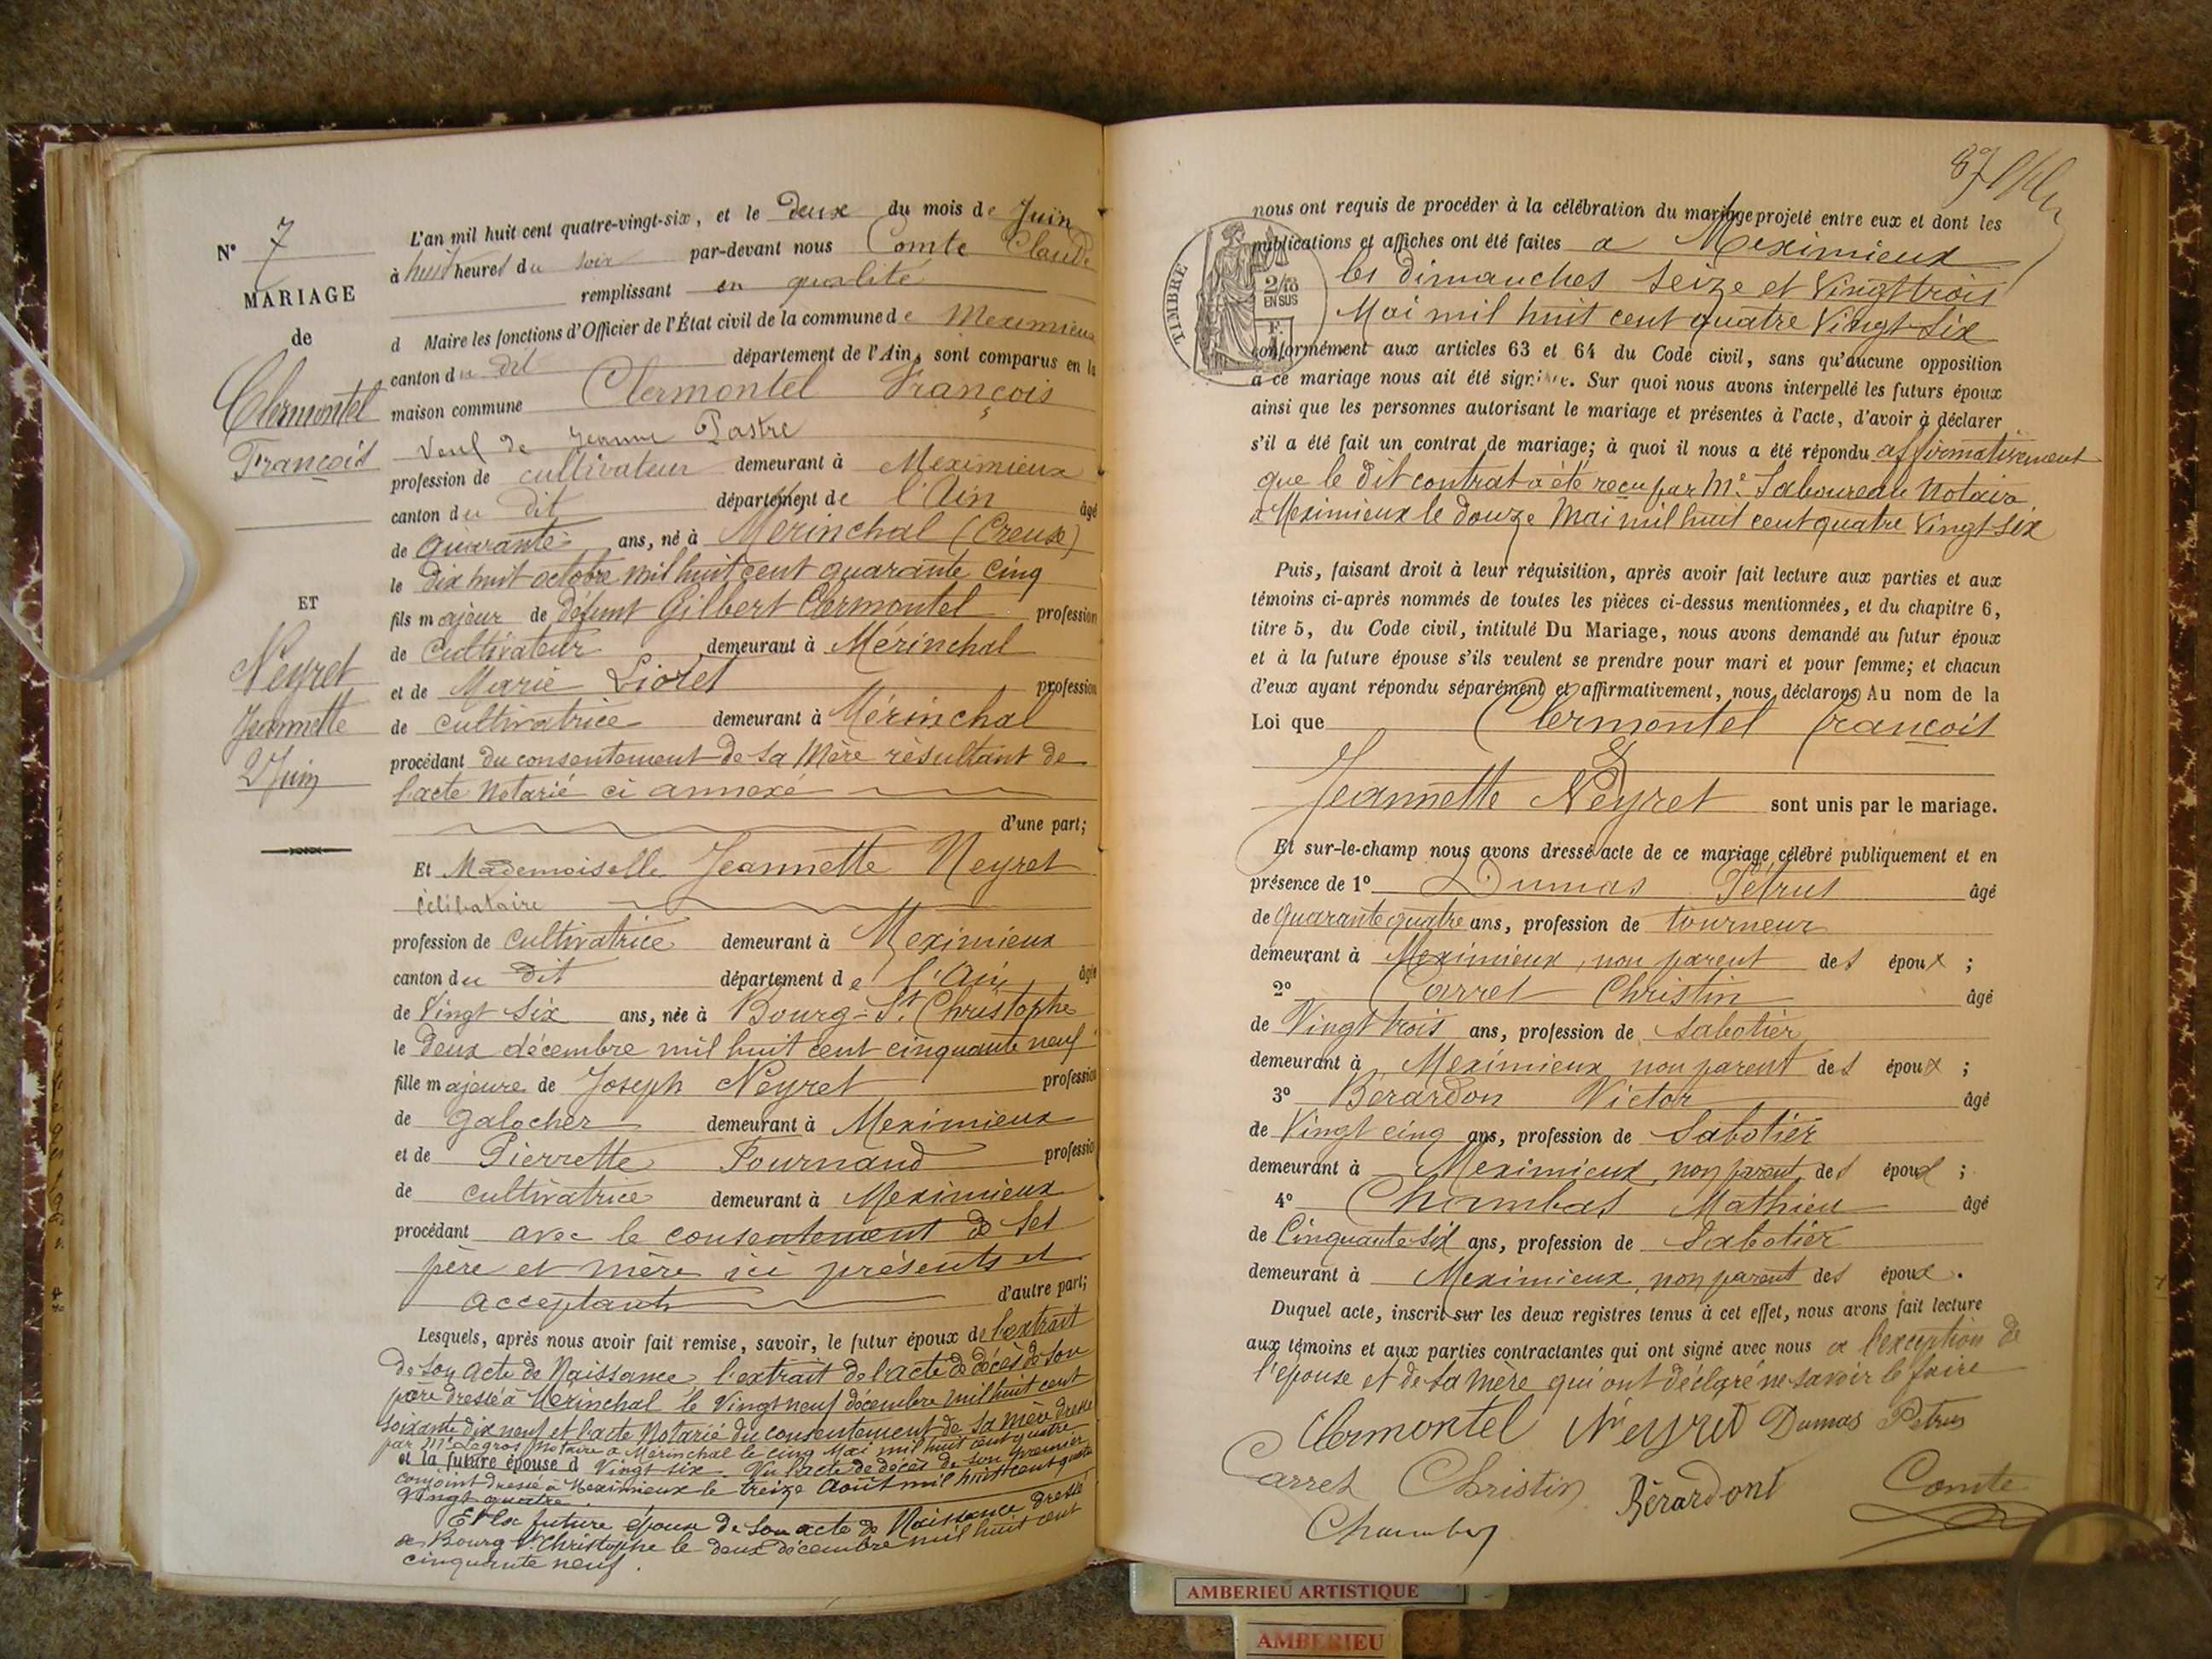 N° 7
MARIAGE
de
Clermontel
François
ET
Neyret
Jeannette
2 Juin
L'an mil huit cent quatre-vingt-six, et le deux du mois de Juin
à huit heures du soir par-devant nous Comte Claude
remplissant en qualité
d Maire les fonctions d'Officier de l'État civil de la commune de Meximieux
canton du dit département de l'Ain, sont comparus en la
maison commune Clermontel François
Veuf de Jeanne Pastre
profession de cultivateur demeurant à Meximieux
canton du dit département de l'Ain âgé
de quarante ans, né à Mérinchal (Creuse)
le dix huit octobre mil huit cent quarante cinq
fils majeur de défunt Gilbert Clermontel profession
de Cultivateur demeurant à Mérinchal
et de Marie Lioret profession
de cultivatrice demeurant à Mérinchal
procédant du consentement de sa Mère résultant de
l'acte Notarié ci annexé
d'une part;
Et Mademoiselle Jeannette Neyret
Célibataire
profession de cultivatrice demeurant à Meximieux
canton du dit département de l'Ain âgée
de Vingt Six ans, née à Bourg-St Christophe
le deux décembre mil huit cent cinquante neuf
fille majeure de Joseph Neyret profession
de galocher demeurant à Meximieux
et de Pierrette Pournand profession
de cultivatrice demeurant à Meximieux
procédant avec le consentement de ses
père et mère ici présents et
acceptants d'autre part;
Lesquels, après nous avoir fait remise, savoir, le futur époux de l'extrait
de son acte de Naissance, l'extrait de l'acte de décès de son
père dressé à Mérinchal le Vingt neuf décembre mil huit cent
soixante dix neuf et l'acte Notarié du consentement de sa mère dressé
par Me Legros Notaire à Mérinchal le cinq Mai mil huit cent quatre
et la future épouse d Vingt six. Vu l'acte de décès de son premier
conjoint dressé à Meximieux le treize Août mil huit cent quatre
Vingt quatre.
Et la future épouse de son acte de Naissance dressé
à Bourg St Christophe le deux décembre mil huit cent
cinquante neuf.
87
TIMBRE
2/10
EN SUS
F.
nous ont requis de procéder à la célébration du mariage projeté entre eux et dont les
publications et affiches ont été faites a Meximieux
les dimanches seize et Vingt trois
Mai mil huit cent quatre Vingt Six
conformément aux articles 63 et 64 du Code civil, sans qu'aucune opposition
à ce mariage nous ait été signifiée. Sur quoi nous avons interpellé les futurs époux
ainsi que les personnes autorisant le mariage et présentes à l'acte, d'avoir à déclarer
s'il a été fait un contrat de mariage; à quoi il nous a été répondu affirmativement
que le dit contrat a été reçu par Me Laboureau Notaire
à Meximieux le douze Mai mil huit cent quatre Vingt Six
Puis, faisant droit à leur réquisition, après avoir fait lecture aux parties et aux
témoins ci-après nommés de toutes les pièces ci-dessus mentionnées, et du chapitre 6,
titre 5, du Code civil, intitulé Du Mariage, nous avons demandé au futur époux
et à la future épouse s'ils veulent se prendre pour mari et pour femme; et chacun
d'eux ayant répondu séparément et affirmativement, nous déclarons Au nom de la
Loi que Clermontel François
&
Jeannette Neyret sont unis par le mariage.
Et sur-le-champ nous avons dressé acte de ce mariage célébré publiquement et en
présence de 1° Dumas Pétrus âgé
de quarante quatre ans, profession de tourneur
demeurant à Meximieux, non parent des époux ;
2° Carret Christin âgé
de Vingt trois ans, profession de Sabotier
demeurant à Meximieux non parent des époux ;
3° Bérardon Victor âgé
de Vingt cinq ans, profession de Sabotier
demeurant à Meximieux, non parent des époux ;
4° Chambas Mathieu âgé
de Cinquante Six ans, profession de Sabotier
demeurant à Meximieux, non parent des époux .
Duquel acte, inscrit sur les deux registres tenus à cet effet, nous avons fait lecture
aux témoins et aux parties contractantes qui ont signé avec nous a l'exception de
l'épouse et de sa mère qui ont déclaré ne savoir le faire
Clermontel Neyret Dumas Petrus
Carret Christin Bérardont Comte
Chambas
AMBERIEU ARTISTIQUE
AMBERIEU